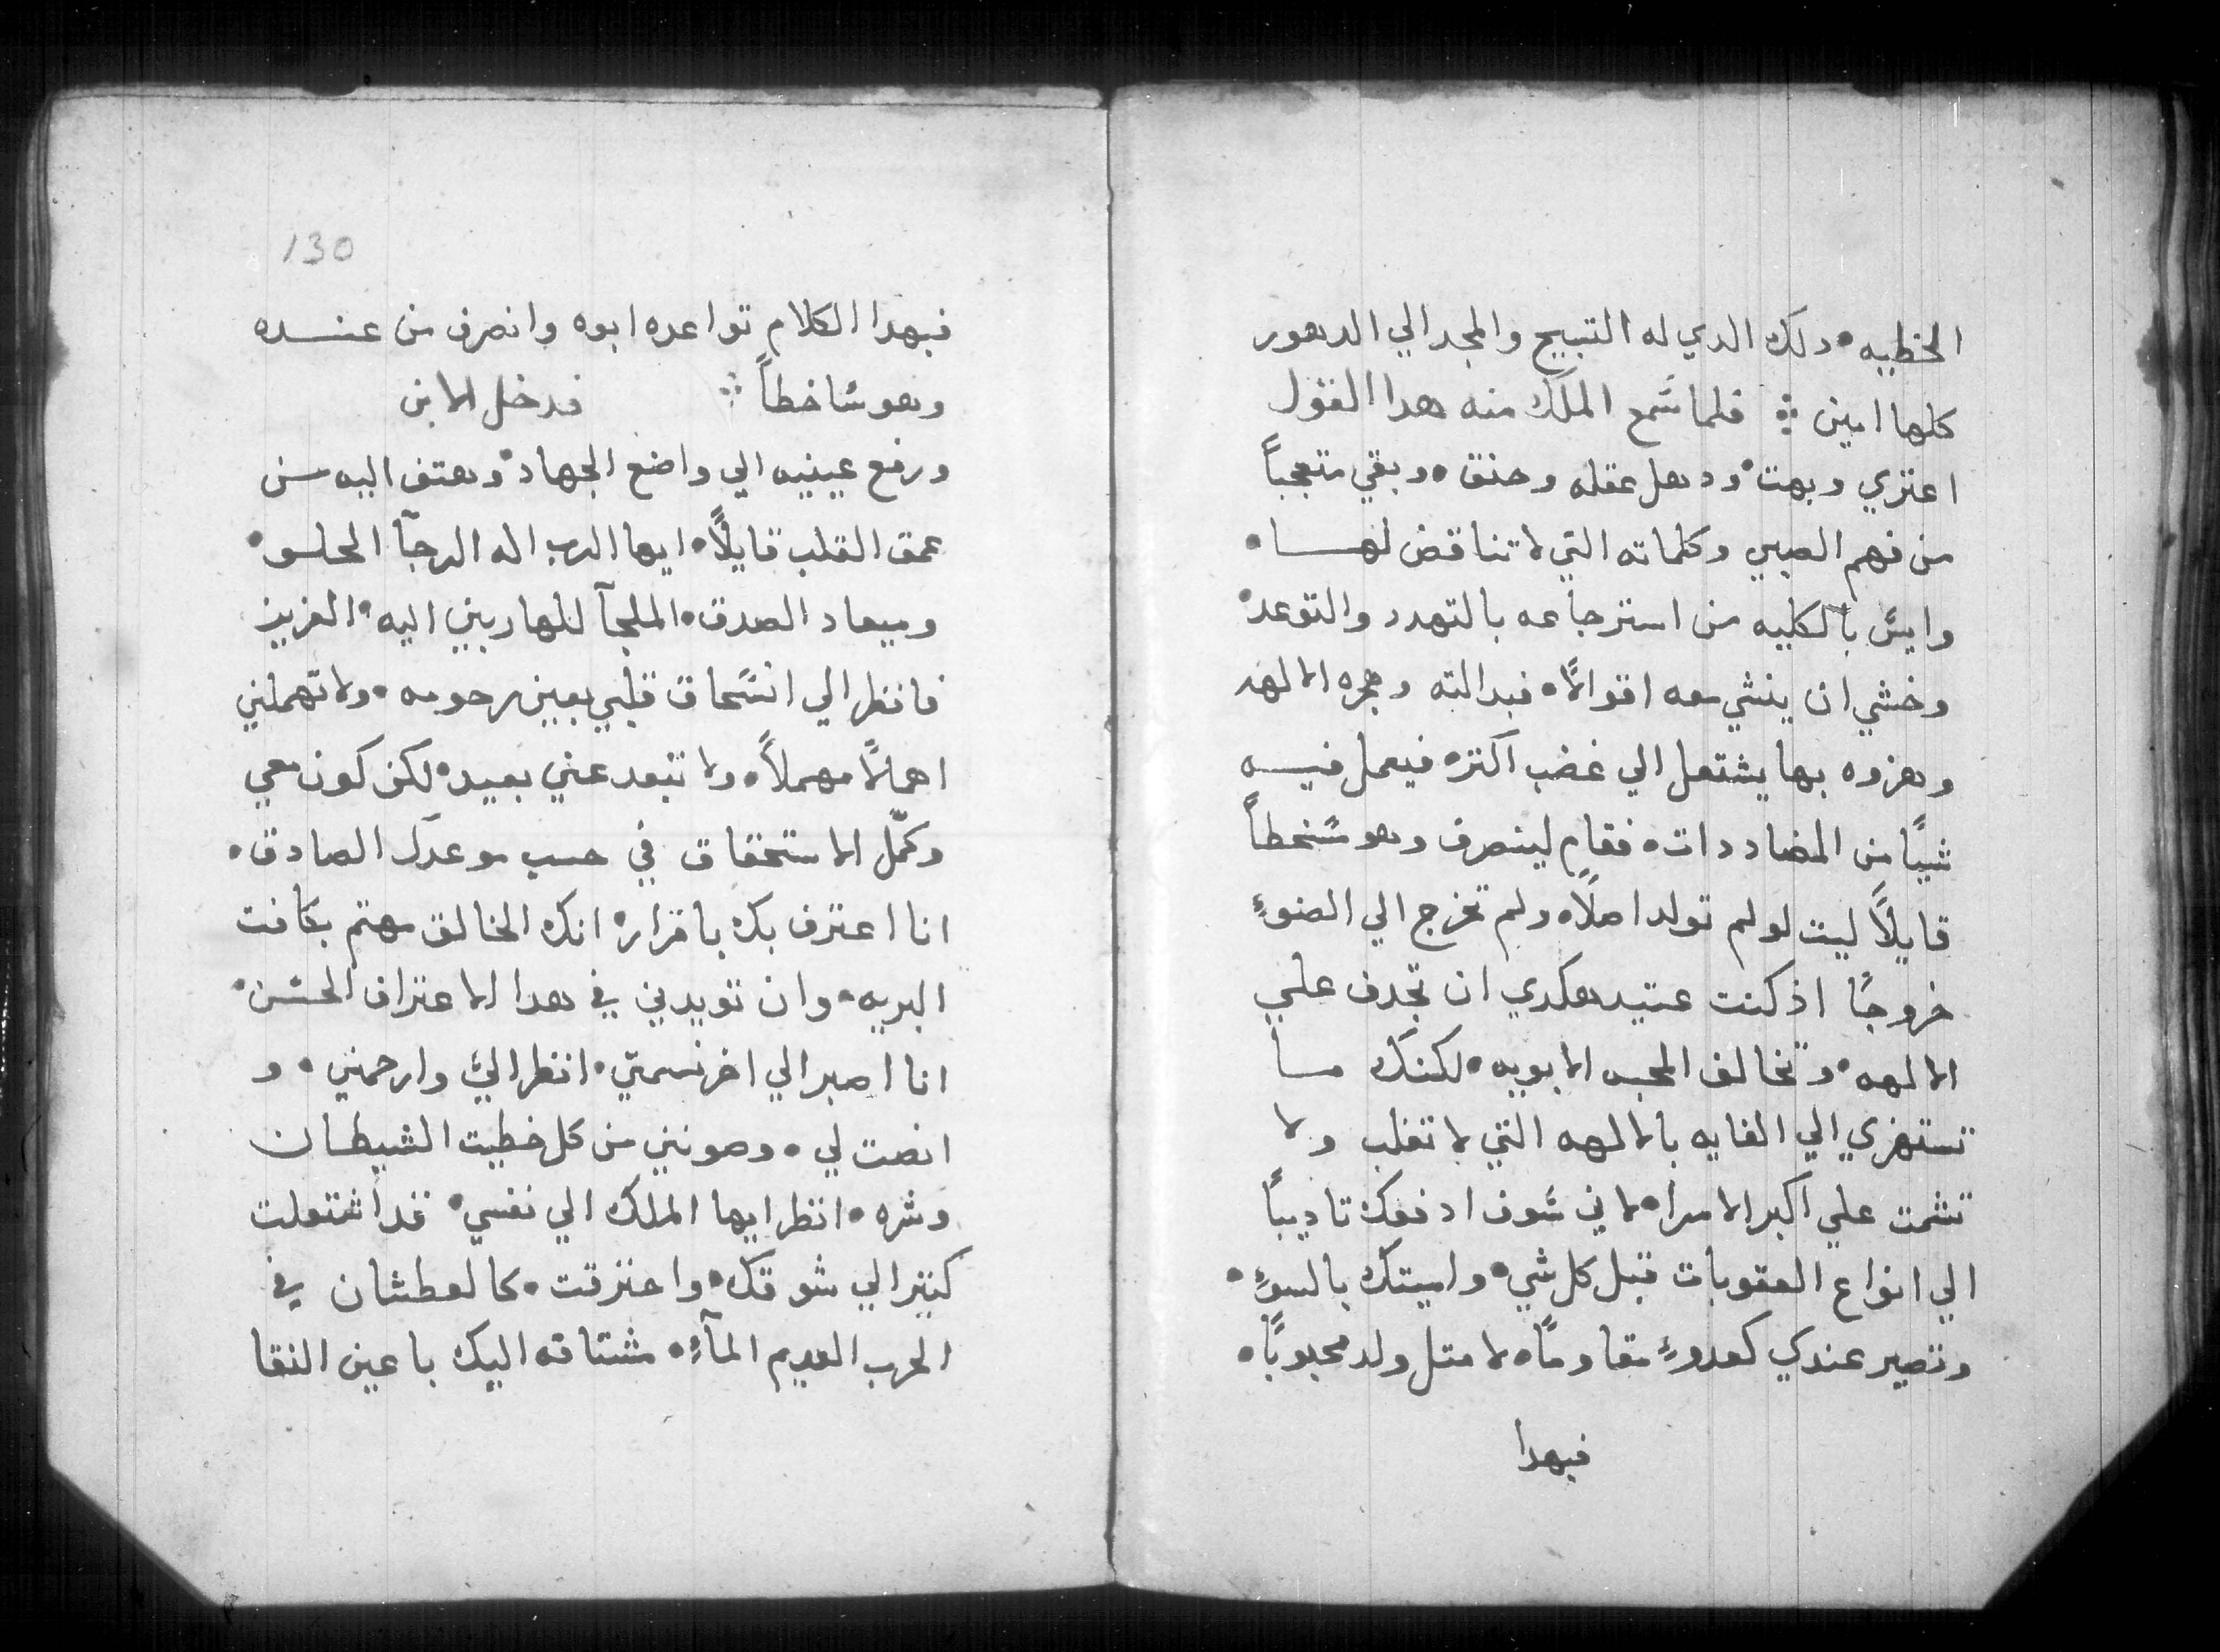 الخطييه • دلك الدي له التسبيح والمجد الي الدهور
كلها امين ⁘ فلما سمع الملك منه هدا القول
اعتزي وبهت • ودهل عقله وحنق • وبقي متعجباً
من فهم الصبي وكلماته التي لا تناقض لهـا •
وايس بالكليه من استرجاعه بالتهدد والتوعد •
وخشي ان ينشي معه اقوالاً • فبدالته وهجره الالهه
وهزوه بها يشتعل الي غضب اكتر • فيعمل فيـه
شيياً من المضاددات • فقام لينصرف وهو سخطاً
قايلاً ليت لو لم تولد اصلاً • ولم تخرج الي الضوءِ
خروجاً اذ كنت عتيد هكدي ان تجدف علـي
الالهه • وتخالف المحبه الابويه • لكنك مـا
تستهزي الي الغايه بالالهه التي لا تغلب ولا
تشمت علي اكبر الامرا • لاني سوف ادفعك تاديباً
الي انواع العقوبات قبل كل شي • واميتك بالسوءِ •
وتصير عندي كعدوءٍ مقاوماً • لا متل ولد محبوباً •
فبهدا
130
فبهدا الكلام تواعده ابوه وانصرف من عنـده
وهو ساخطاً ⁘ فدخل الابن
ورفع عينيه الي واضع الجهاد • وهتف اليه مـن
عمق القلب قايلاً • ايها الرب اله الرجآ الحلـو •
وميعاد الصدق • الملجآ للهاربين اليه • العزيز
فانظر الي انسحاق قلبي بعين رحومه • ولا تهملني
اهمالاً مهملاً • ولا تبعد عني بعيد • لكن كون معي
وكمّل الاستحقاق في حسب موعدك الصادق •
انا اعترف بك باقرار • انك الخالق مهتم بكافت
البريه • وان تويدني في هدا الاعتراف الحسن •
انا اصبر الي اخر نسمتي • انظر اليّ وارحمني • و
انصت لي • وصونني من كل خطيت الشيطـان
وشره • انظر ايها الملك الي نفسي • قد اشتعلت
كتير الي شوقك • واحترقت • كالعطشان في
الحرب العديم المآءِ • مشتاقه اليك يا عين النقا